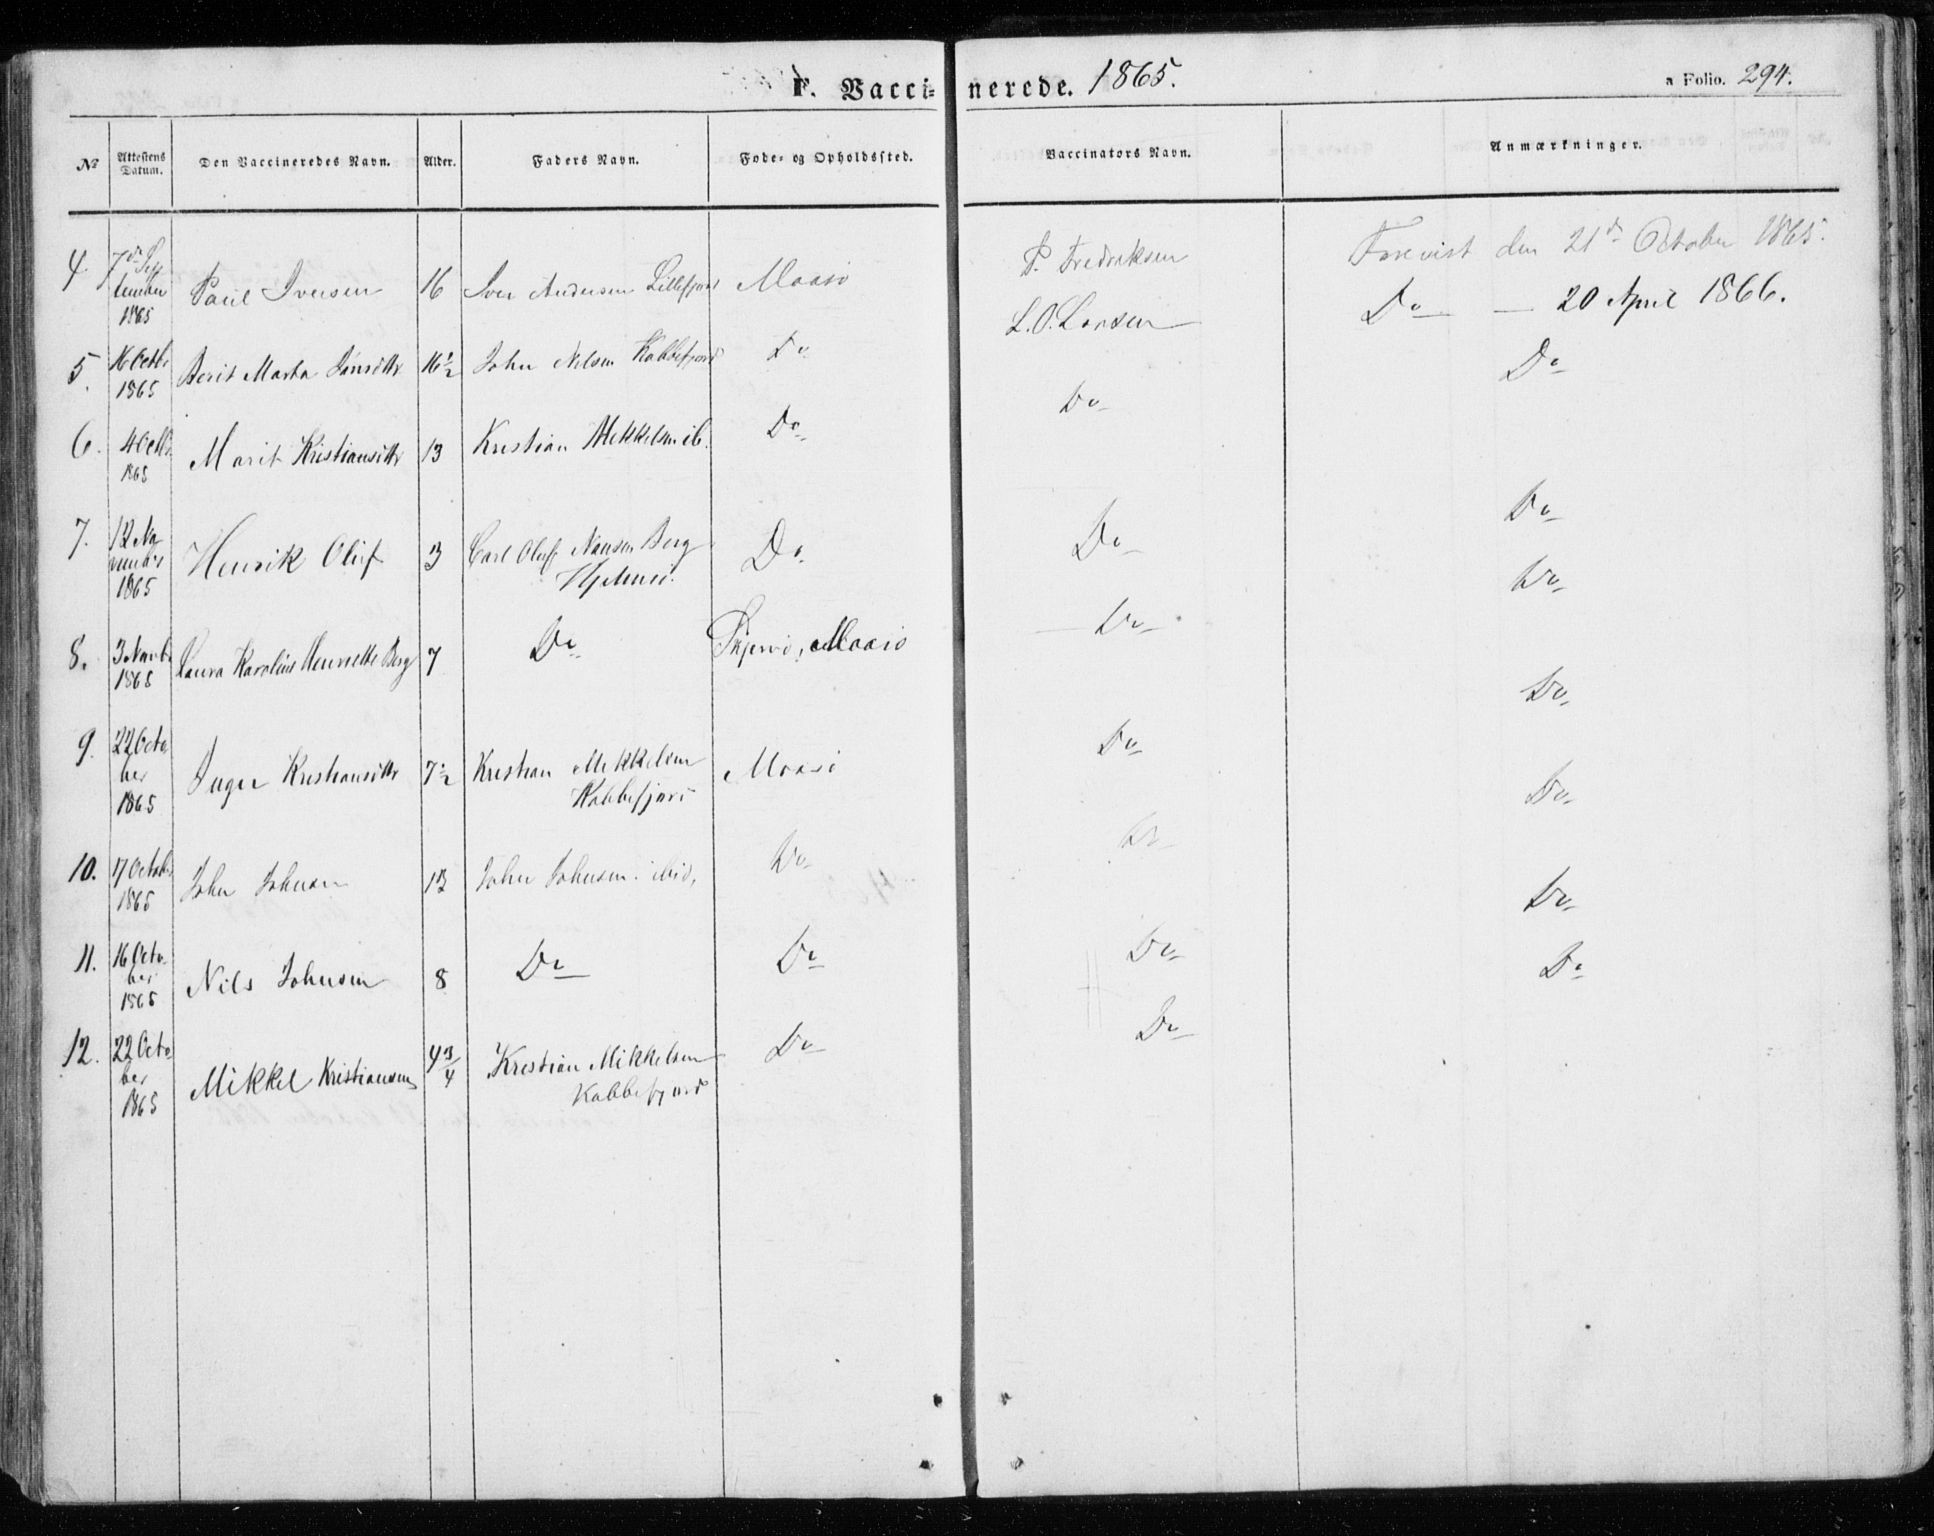 F. Vacci- nerede. 1865.
a Folio. 294.
No
Attestens Datum.
Den Vaccineredes Navn.
Alder.
Faders Navn.
Føde- og Opholdssted.
Vaccinators Navn.
Anmærkninger.
4 7de Sep
tember
1865 Paul Iversen 16 Iver Andersen Lillefjord Maasø P. Fredriksen Forevist den 21de October 1865.
5. 16 Octbr
1865 Berit Marta Jonsdttr 16½ John Nilsen Kobbefjord Do L. O. Larsen Do — 20 April 1866.
6. 4 Octbr
1865 Marit Kristiansdttr 13 Kristian Mikkelsen ib. Do Do Do
7. 12 No
vember
1865 Henrik Oluf 3 Carl Oluf Nansen Berg
Hjelmsø. Do Do Do
8. 3 Novbr
1865 Laura Karoline Henriette Berg 7 Do Skjervø, Maasø Do Do
9. 22 Octo
ber
1865 Inger Kristiansdttr 7½ Kristian Mikkelsen
Kobbefjord Maasø Do Do
10. 17 Octobr
1865 John Johnsen 13 John Johnsen ibid. Do Do Do
11. 16 Octo
ber
1865 Nils Johnsen 8 Do Do Do Do
12. 22 Octo
ber
1865 Mikkel Kristiansen 4¾ Kristian Mikkelsen
Kobbefjord Do Do Do